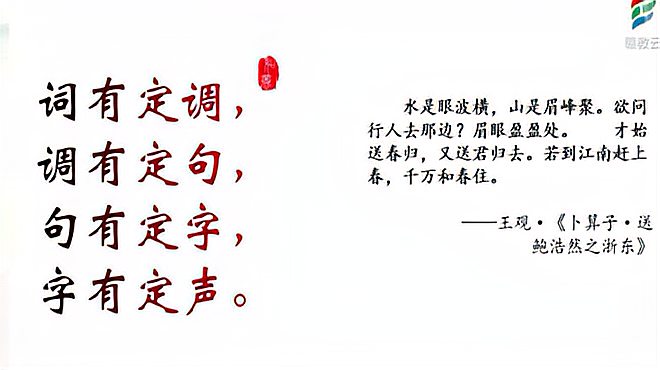 词有定调，
调有定句，
句有定字，
字有定声。
水是眼波横，山是眉峰聚。欲问
行人去那边？眉眼盈盈处。　　才始
送春归，又送君归去。若到江南赶上
春，千万和春住。
——王观·《卜算子·送
鲍浩然之浙东》